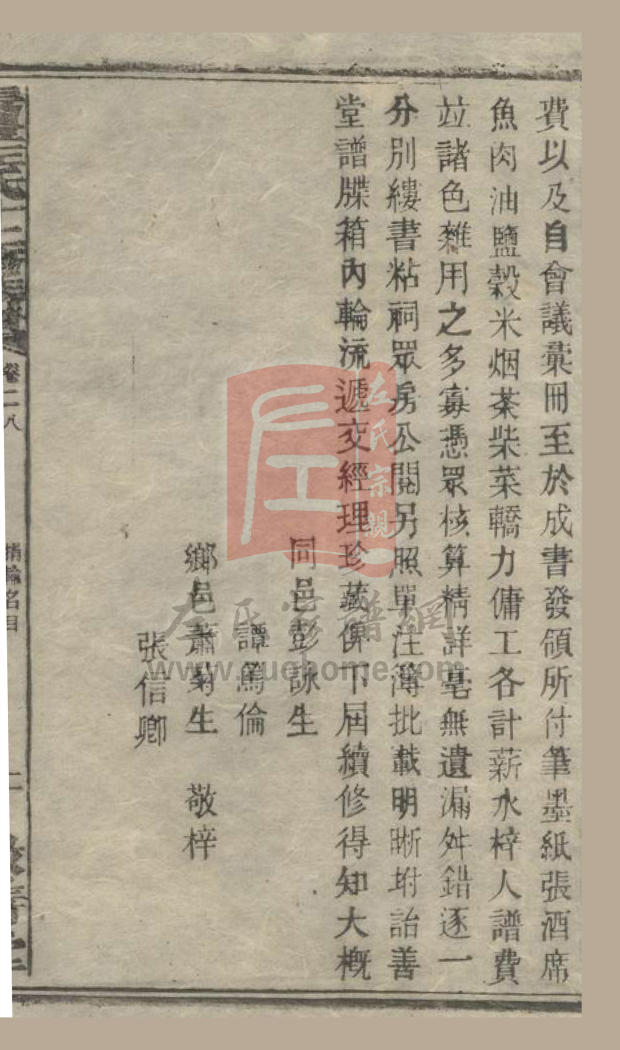 費以及自會議彚冊至於成書發領所付筆墨紙張酒席
魚肉油鹽穀米烟茶柴菜轎力傭工各計薪水梓人譜費
竝諸色雜用之多寡憑眾核算精詳毫無遺漏舛錯逐一
分別縷書粘祠眾房公閱另照單注簿批載明晰坿詒善
堂譜牒箱內輪流遞交經理珍藏俾下屆續修得知大概
同邑彭詠生
譚篤倫
鄉邑蕭菊生 敬梓
張信卿
卷二八
捐輸名目
二
左氏宗親
左氏家譜網
www.zuohome.com